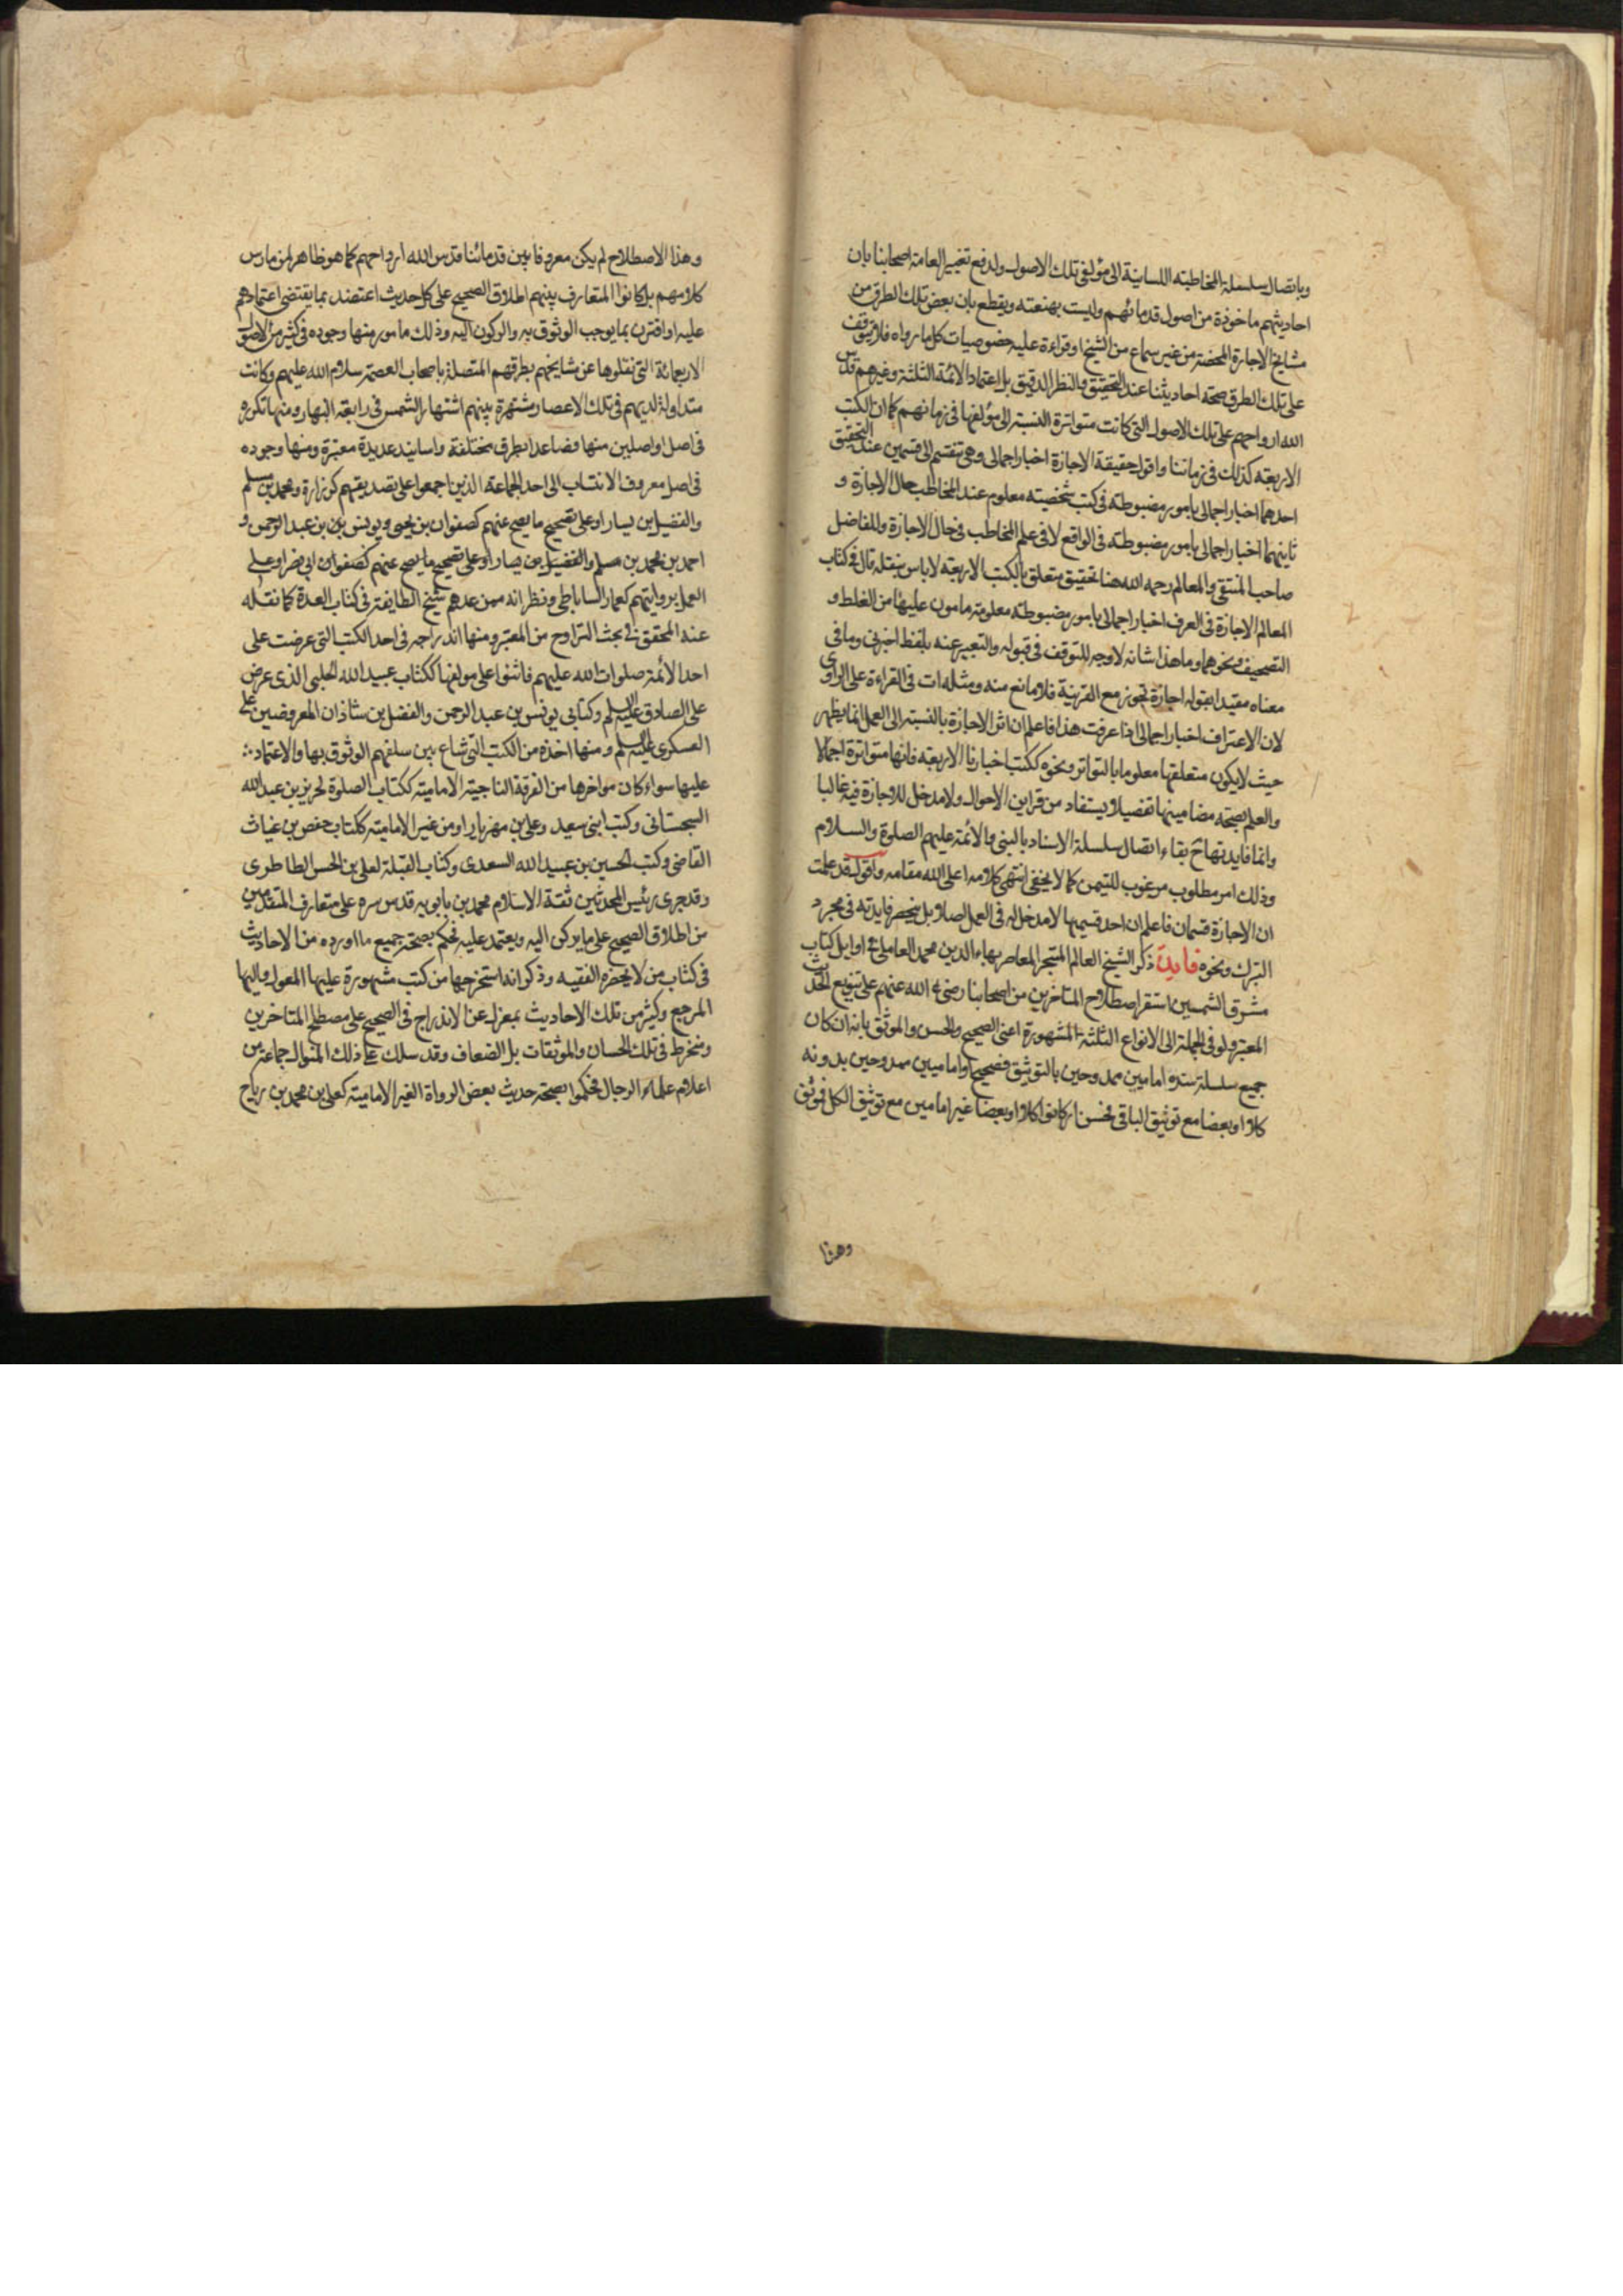 وباتصال سلسلة المخاطبة اللسانية الى مؤلفى تلك الاصول ولدفع تعيير العامة اصحابنا بان
احاديثهم ماخوذة من اصول قدمائهم وليست بمعنعنة ويقطع بان بعض تلك الطرق من
مشايخ الاجازة المحضة من غير سماع من الشيخ او قراءة عليه خصوصيات كل ما رواه فلا يتوقف
على تلك الطرق صحة احاديثنا عند التحقيق والنظر الدقيق بل اعتماد الائمة الثلثة وغيرهم قدس
الله ارواحهم على تلك الاصول التى كانت متواترة النسبة الى مؤلفها فى زمانهم كما ان الكتب
الاربعة كذلك فى زماننا واقول حقيقة الاجازة اخبار اجمالى وهى تنقسم الى قسمين عند التحقيق
احدهما اخبار اجمالى بامور مضبوطة فى كتب شخصية معلوم عند المخاطب حال الاجازة و
ثانيهما اخبار اجمالى بامور مضبوطة فى الواقع لا فى علم المخاطب فى حال الاجازة وللفاضل
صاحب المنتقى والمعالم رحمه الله هنا تحقيق يتعلق بالكتب الاربعة لا باس بنقله قال فى كتاب
المعالم الاجازة فى العرف اخبار اجمالى بامور مضبوطة معلومة مامون عليها من الغلط و
التصحيف ونحوهما وما هذا شانه لا وجه للتوقف فى قبوله والتعبير عنه بلفظ اخبرنى وما فى
معناه مقيدا بقوله اجازة تجوز مع القرينة فلا مانع منه ومثله ات فى القراءة على الراوى
لان الاعتراف اخبار اجمالى اذا عرفت هذا فاعلم ان اثر الاجازة بالنسبة الى العمل انما يظهر
حيث لا يكون متعلقها معلوما بالتواتر ونحوه ككتب اخبارنا الاربعة فانها متواترة اجمالا
والعلم بصحة مضامينها تفصيلا يستفاد من قراين الاحوال ولا مدخل للاجازة فيه غالبا
وانما فايدتها ح بقاء اتصال سلسلة الاسناد بالنبى والائمة عليهم الصلوة والسلام
وذلك امر مطلوب مرغوب للتيمن كما لا يخفى انتهى كلامه اعلى الله مقامه واقول قد علمت
ان الاجازة قسمان فاعلم ان احد قسيمها لا مدخل له فى العمل اصلا بل ينحصر فايدته فى مجرد
التبرك ونحوه فايدة ذكر الشيخ العالم المتبحر المعاصر بهاء الدين محمد العاملى فى اوايل كتاب
مشرق الشمسين استقر اصطلاح المتاخرين من اصحابنا رضى الله عنهم على تنويع الحديث
المعتبر ولو فى الجملة الى الانواع الثلثة المشهورة اعنى الصحيح والحسن والموثق بانه ان كان
جميع سلسلة سنده امامين ممدوحين بالتوثيق فصحيح او اماميين ممدوحين بدونه
كلا او بعضا مع توثيق الباقى فحسن او كانوا كلا او بعضا غير امامين مع توثيق الكل فموثق
وهذا
وهذا الاصطلاح لم يكن معروفا بين قدمائنا قدس الله ارواحهم كما هو ظاهر لمن مارس
كلامهم بل كانوا المتعارف بينهم اطلاق الصحيح على كل حديث اعتضد بما يقتضى اعتمادهم
عليه او اقترن بما يوجب الوثوق به والركون اليه وذلك مامور منها وجوده فى كثير من الاصول
الاربعمائة التى نقلوها عن مشايخهم بطرقهم المتصلة باصحاب العصمة سلام الله عليهم وكانت
متداولة لديهم فى تلك الاعصار مشتهرة بينهم اشتهار الشمس فى رابعة النهار ومنها تكرره
فى اصل او اصلين منها فصاعدا بطرق مختلفة واسانيد عديدة معتبرة ومنها وجوده
فى اصل معروف الانتساب الى احد الجماعة الذين اجمعوا على تصديقهم كزرارة ومحمد بن مسلم
والفضيل بن يسار او على تصحيح ما يصح عنهم كصفوان بن يحيى ويونس بن بن عبد الرحمن و
احمد بن محمد بن مسلم والفضيل بن يسار او على تصحيح ما يصح عنهم كصفوان ابى نصر او على
العمل بروايتهم كعمار الساباطى ونظرائه ممن عدهم شيخ الطايفة فى كتاب العدة كما نقله
عنه المحقق فى بحث التراوح من المعتبر ومنها اندراجه فى احد الكتب التى عرضت على
احد الائمة صلوات الله عليهم فاثنوا على مولفها ككتاب عبيد الله الحلبى الذى عرض
على الصادق عليه السلم وكتابى يونس بن عبد الرحمن والفضل بن شاذان المعروضين على
العسكرى عليه السلم ومنها اخذه من الكتب التى شاع بين سلفهم الوثوق بها والاعتماد
عليها سواء كان مولفها من الفرقة الناجية الامامية ككتاب الصلوة لحريز بن عبد الله
السجستانى وكتب ابنى سعيد وعلى بن مهزيار او من غير الامامية ككتاب حفص بن غياث
القاضى وكتب الحسين بن عبيد الله السعدى وكتاب القبلة لعلى بن الحسن الطاطرى
وقد جرى رئيس المحدثين ثقة الاسلام محمد بن بابويه قدس سره على متعارف المتقدمين
من اطلاق الصحيح على ما يركن اليه ويعتمد عليه فحكم بصحة جميع ما اورده من الاحاديث
فى كتاب من لا يحضره الفقيه وذكر انه استخرجها من كتب مشهورة عليها المعول واليها
المرجع وكثير من تلك الاحاديث بمعزل عن الاندراج فى الصحيح على مصطلح المتاخرين
ومنخرط فى تلك الحسان والموثقات بل الضعاف وقد سلك على ذلك المنوال جماعة من
اعلام علماء الرجال فحكموا بصحة حديث بعض الرواة الغير الامامية كعلى بن محمد بن رياح